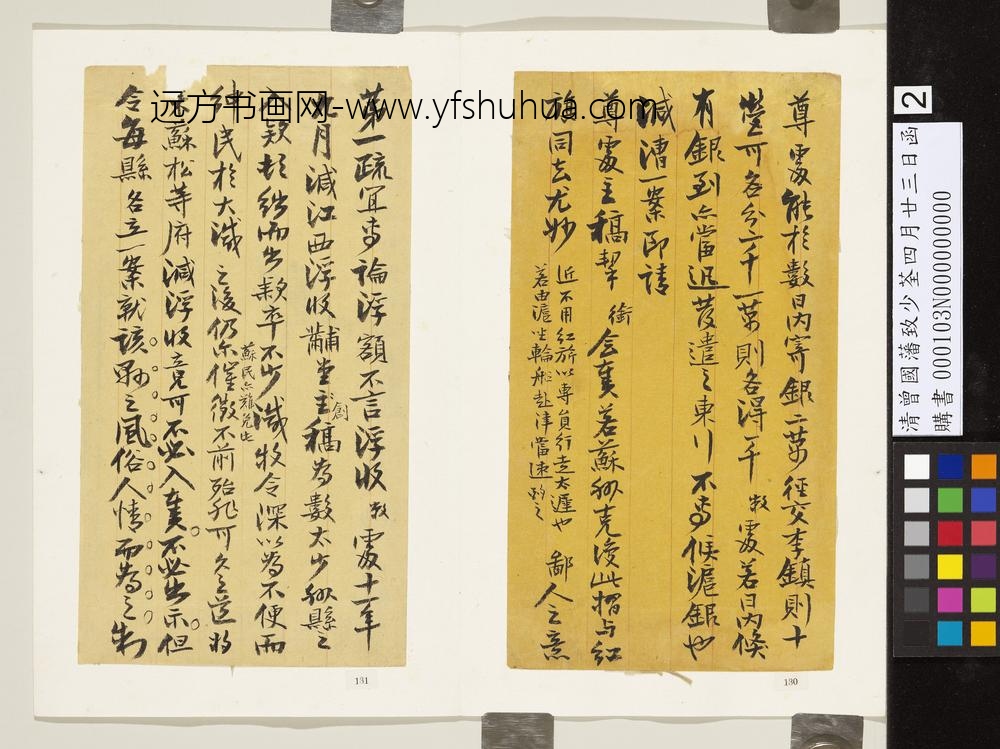 尊處能於數日內寄銀二萬徑交李鎮則十
營可各分二千一萬則各得一千 敝處若日內倏
有銀到亦當迅發遣之東行不專候滬銀也
減漕一案即請
尊處主稿挈銜會奏若蘇州克復此摺與紅
旂同去尤妙
近不用紅旂以專員行走太遲也
若由滬坐輪船赴津當速到之
鄙人之意
第一疏宜專論浮額不言浮收敝處十一年
月減江西浮收黼堂創主稿為數太少州縣之
款都絀而出款率不少減牧令深以為不便而
民於大減之後仍亦催徵不前殆非可久之道將
蘇民亦難免此
蘇松等府減浮收竟可不必入奏不必出示但
令每縣各立一案就該縣之風俗人情而為之制
远方书画网-www.yfshuhua.com
130
131
2
清曾國藩致少荃四月廿三日函
購書 0001103N000000000